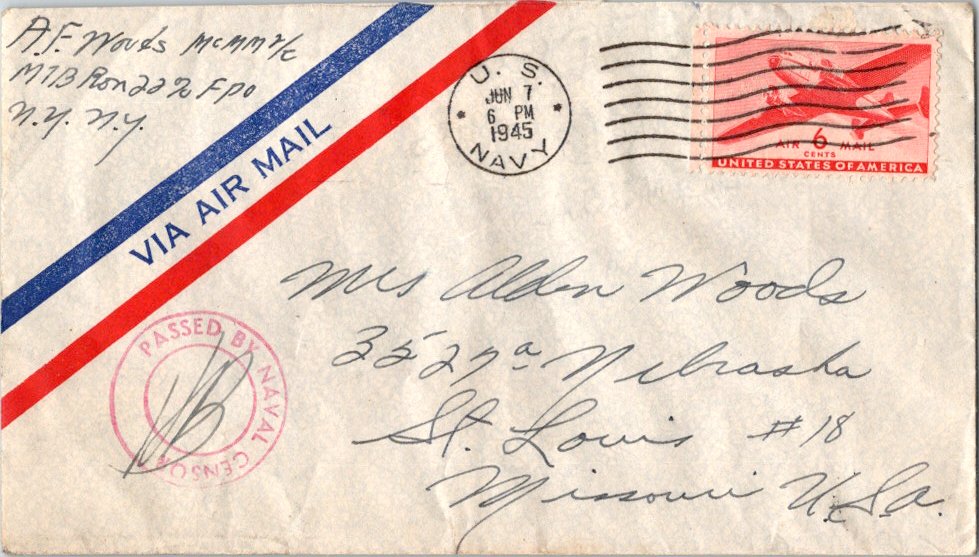 A.F. Woods McMM 2/c
MTB Ron 22 % FPO
N.Y. N.Y.
VIA AIR MAIL
U. S.
JUN 7
6 PM
1945
NAVY
AIR 6 MAIL
CENTS
UNITED STATES OF AMERICA
Mrs Alden Woods
3527a Nebraska
St. Louis #18
Missouri U.S.a.
PASSED BY NAVAL CENSOR